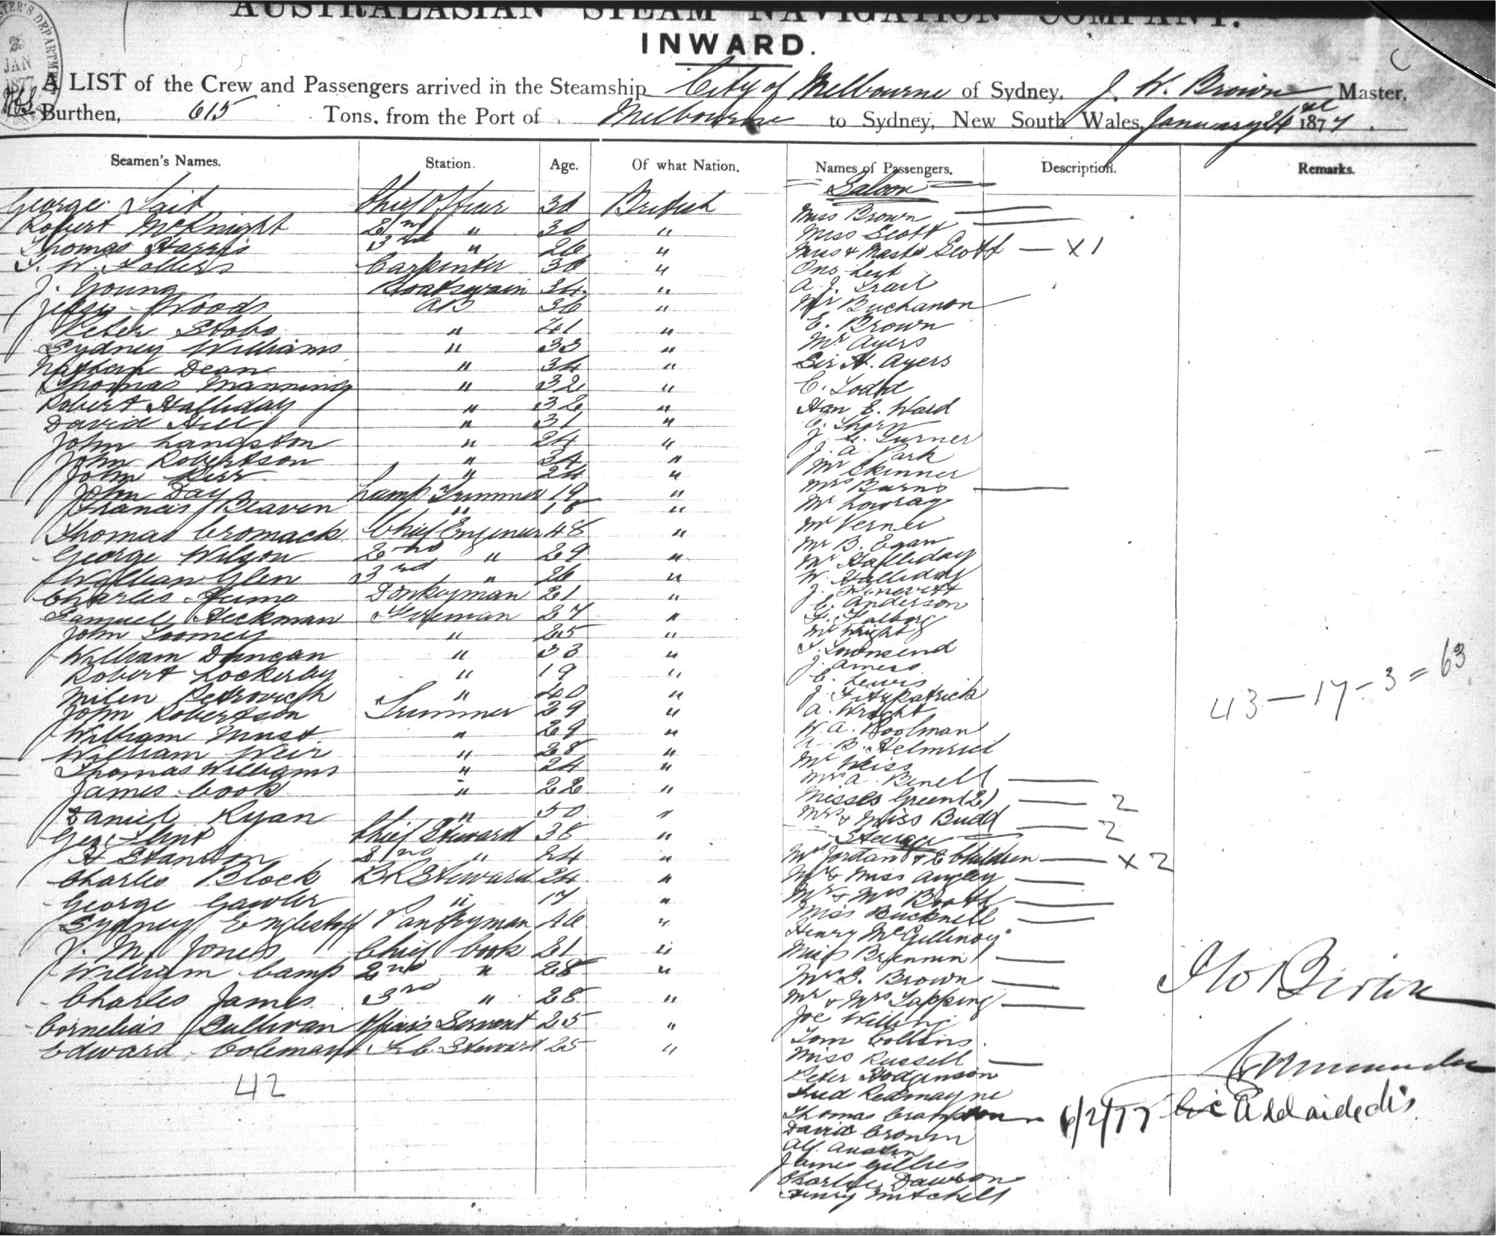 AUSTRALASIAN STEAM NAVIGATION COMPANY.
INWARD.
A LIST of the Crew and Passengers arrived in the Steamship City of Melbourne of Sydney, J. W. Brown Master,
Burthen, 615 Tons, from the Port of Melbourne to Sydney, New South Wales, January 1877.
Seamen's Names. Station. Age. Of what Nation. Names of Passengers. Description. Remarks.
George Tait Chief Officer 30 British
Robert McKnight 2nd " 30 "
Thomas Harris 3rd " 26 "
Carpenter 30 "
J. Young Boatswain 34 "
Woods AB 36 "
Peter Stobo " 41 "
Sydney Williams " 33 "
Nathan Dean " 34 "
Thomas Manning " 32 "
Robert Halliday " 32 "
David Hill " 31 "
John Langston " 24 "
John Robertson " 34 "
John Kerr " 24 "
John Day Lamp Trimmer 19 "
Francis Beaven " 18 "
Thomas Cromack Chief Engineer 48 "
George Wilson 2nd " 29 "
William Glen 3rd " 26 "
Charles Hume Donkeyman 21 "
Samuel Heckman Fireman 27 "
John Toomey " 25 "
William Duncan " 33 "
Robert Lockerby " 19 "
Milen Petrovich " 40 "
John Robertson Trimmer 29 "
William Must " 29 "
William Weir " 28 "
Thomas Williams " 24 "
James Cook " 22 "
Daniel Ryan " 50 "
Geo. Flint Chief Steward 38 "
H Stanton 2nd " 24 "
Charles Block Steward 24 "
George Gawler " 17 "
Sydney Englestoff Pantryman 46 "
J. M. Jones Chief Cook 21 "
William Camp 2nd " 28 "
Charles James 3rd " 28 "
Cornelius Sullivan Servant 25 "
Edward Coleman Steward 25 "
42
Saloon
Miss Brown
Miss Scott
Miss & Master Scott — x 1
A. J. Trail
Mr Buchanon
E. Brown
Mr Ayers
Sir H. Ayers
C. Todd
Hon E. Ward
C. Thorn
J. G. Turner
J. A. Park
Mr Skinner
Mrs Burns
Mr Lowray
Mr Verner
Mr B. Egan
Mr Halliday
W. Halliday
C. Anderson
Mr Wright
F. Townsend
J. Amess
C. Lewis
J. Fitzpatrick
A. Wright
W. A. Woolman
A. B. Helmrich
Mr Weiss
Mrs A. Binell
Misses Green (2) — 2
Mrs & Miss Budd — 2
Steerage
Mrs Jordan & 2 Children — x 2
Mr & Miss
Mr & Mrs Booth
Miss Bucknell
Henry McGillivoy
Miss Brennin
Mrs G. Brown
Mr & Mrs Tapping
Joe
Tom Collins
Miss Russell
Peter Hodginson
Fred Redmayne
Thomas
David Cronin
Alf Austin
James Gillies
Charles Dawson
Henry Mitchell
43 — 17 - 3 = 63
Jno Brown
Commander
6/2/77